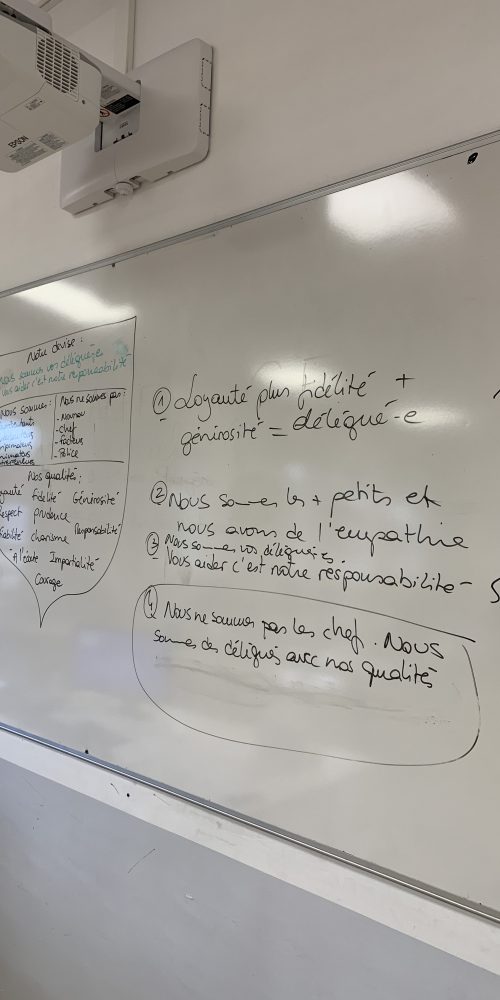 EPSON
Notre devise :
Nous sommes vos délégué-e
vous aider c'est notre responsabilité
Nous sommes :
Nos ne sommes pas :
- Nounou
- chef
- facteurs
- Police
Nos qualités :
Loyauté fidelité Générosité
Respect prudence
charisme Responsabilité
A l'écoute Impartialité
Courage
① Loyauté plus fidélité +
générosité = délégué-e
② Nous sommes les + petits et
nous avons de l'empathie
③ Nous sommes vos délégué.es.
Vous aider c'est notre responsabilité
④ Nous ne sommes pas les chef. Nous
sommes des délégués avec nos qualités